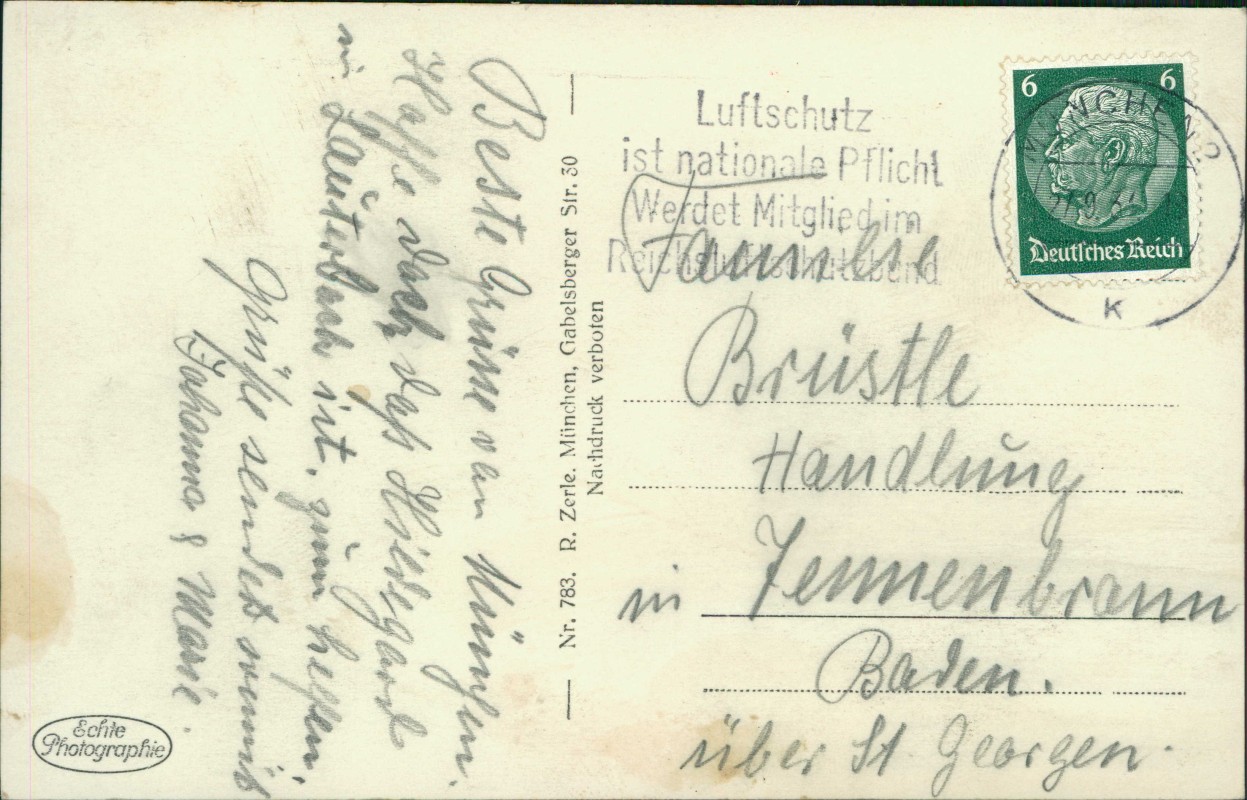 Beste Grüsse von München.
Hoffe doch daß Hildegard
in Lauterbach ist, zum helfen.
Grüße sendet
Johanna & Marie.
Echte
Photographie
Nr. 783. R. Zerle. München, Gabelsberger Str. 30
Nachdruck verboten
Luftschutz
ist nationale Pflicht
Werdet Mitglied im
Reichsluftschutzbund
MÜNCHEN 2
K
6 6
Deutsches Reich
Familie
Brüstle
Handlung
in Tennenbronn
Baden.
über St. Georgen.